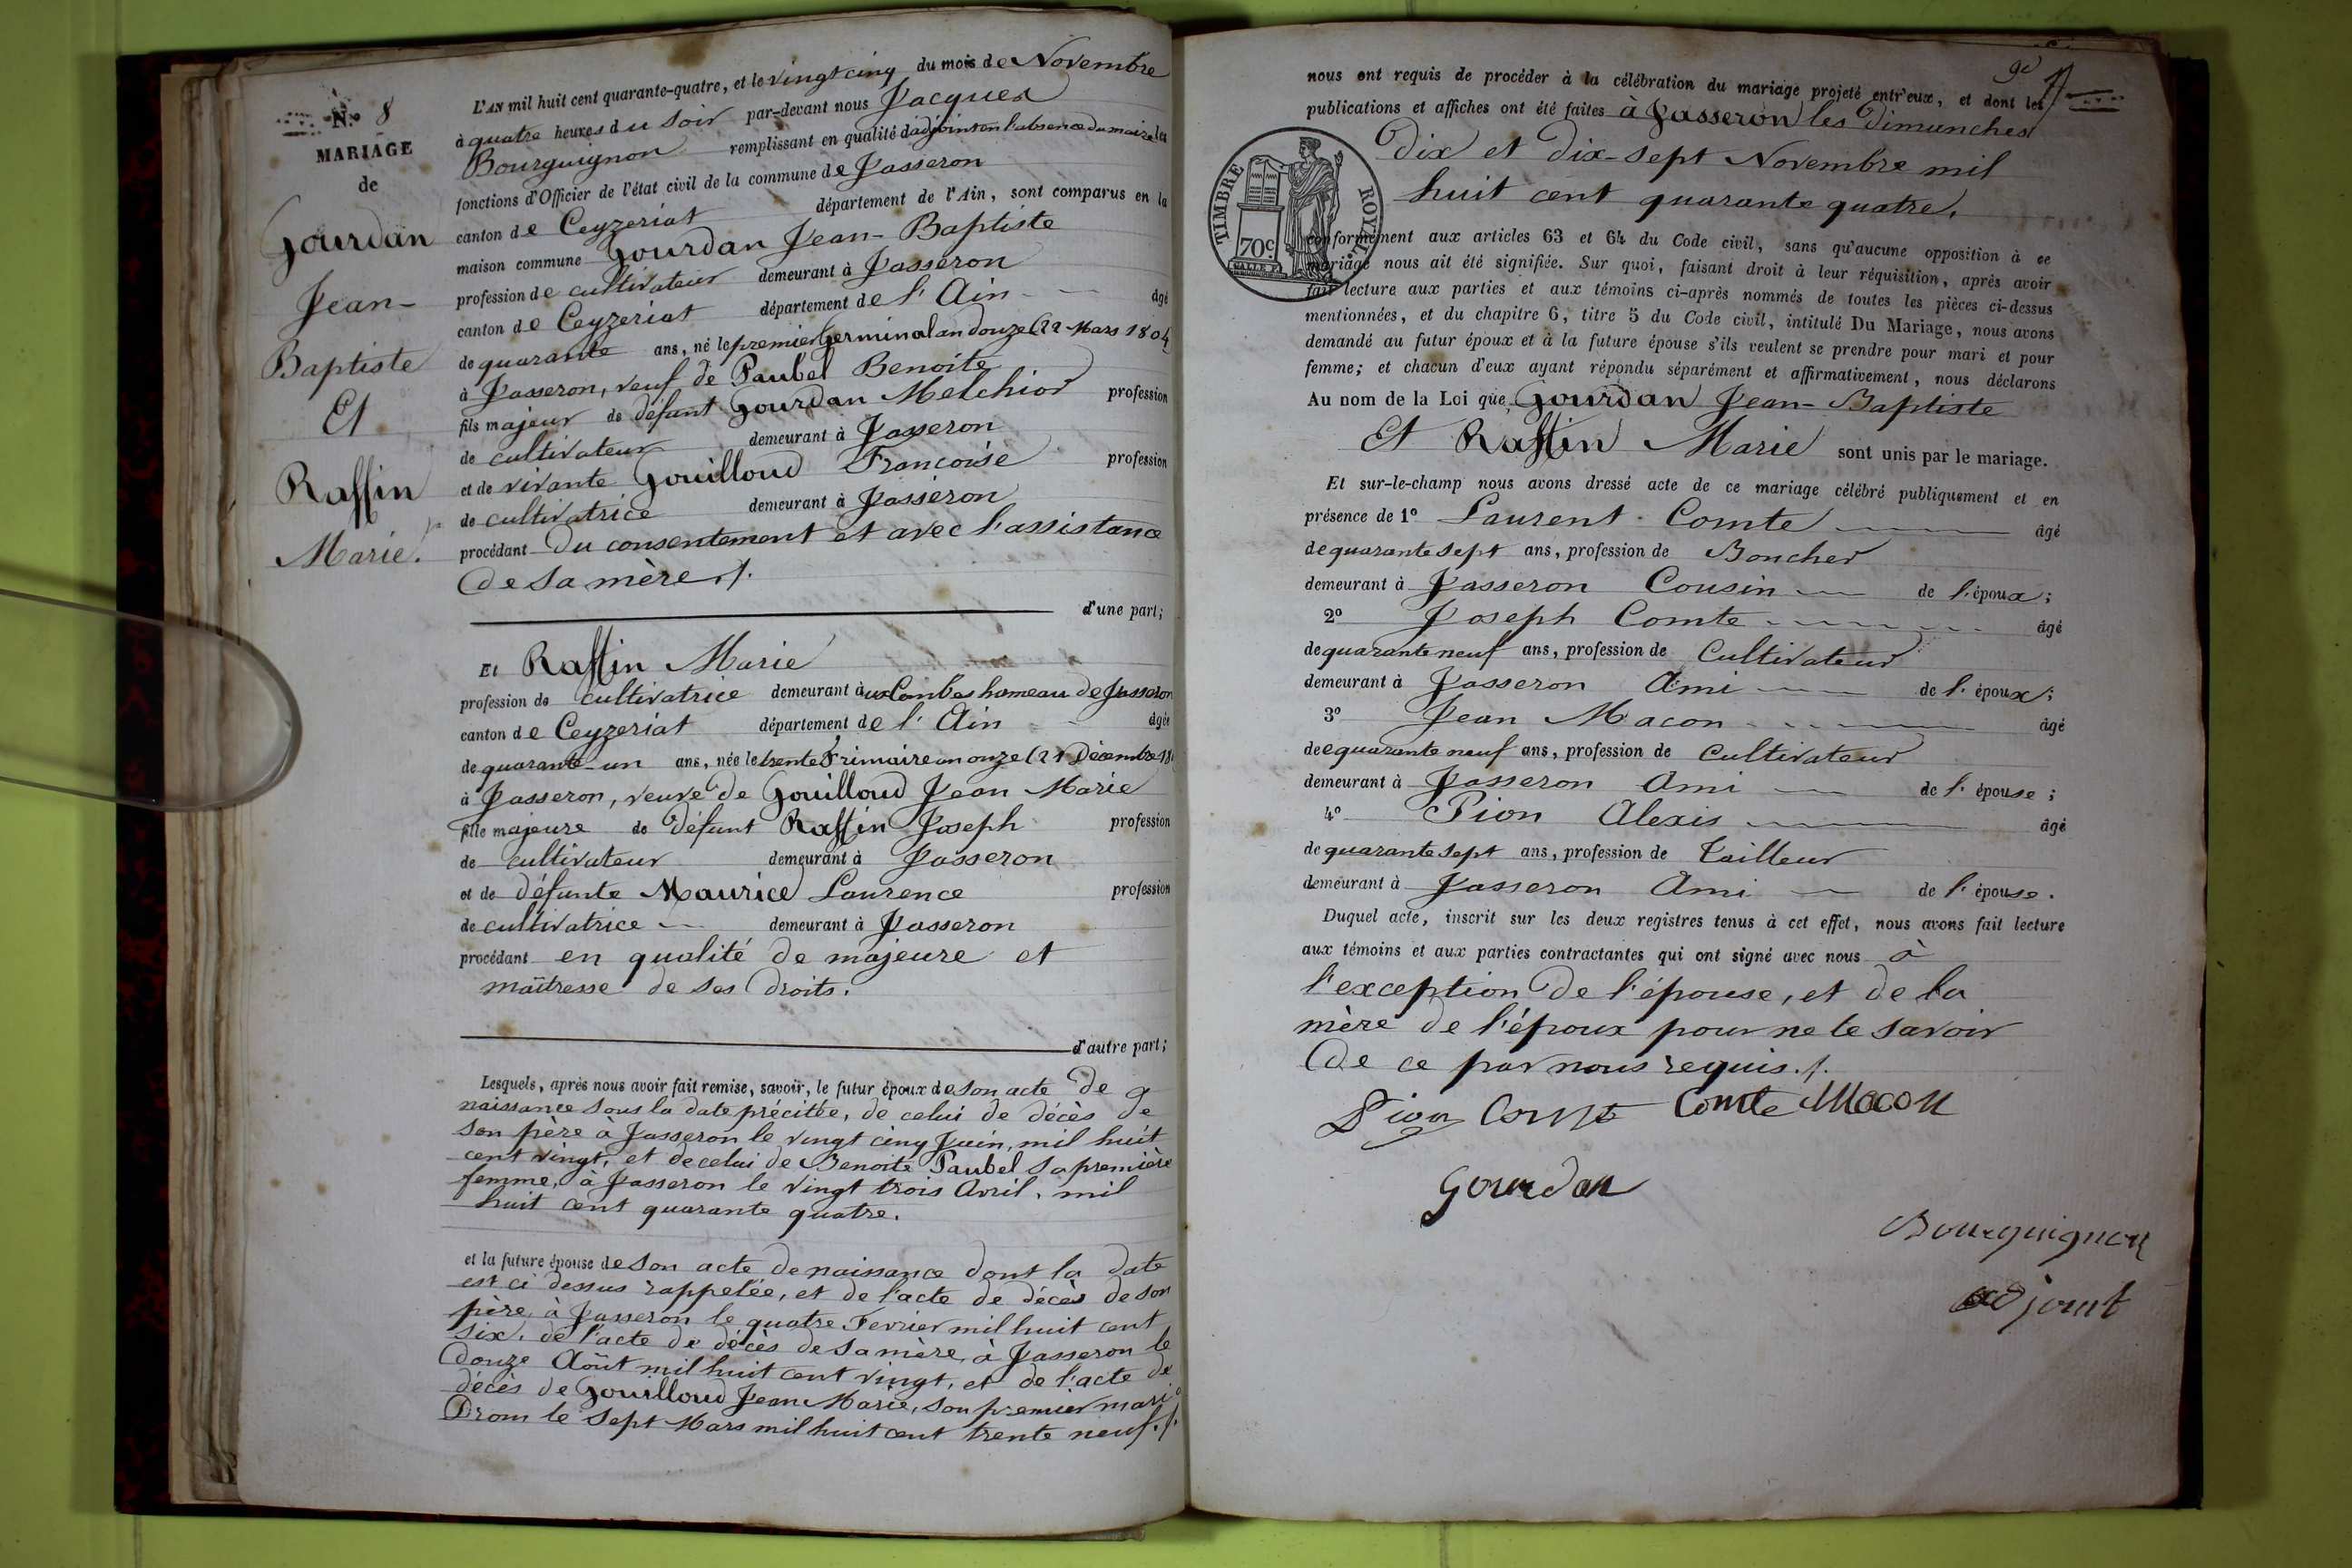 N.º 8
MARIAGE
de
Gourdan
Jean-
Baptiste
Et
Raffin
Marie.
L'AN mil huit cent quarante-quatre, et le vingt cinq du mois de Novembre
à quatre heures du soir par-devant nous Jacques
Bourguignon remplissant en qualité d'adjoint en l'absence du maire les
fonctions d'Officier de l'état civil de la commune de Jasseron
canton de Ceyzeriat département de l'Ain, sont comparus en la
maison commune Gourdan Jean-Baptiste
profession de cultivateur demeurant à Jasseron
canton de Ceyzeriat département de l'Ain âgé
de quarante ans, né le premier Germinal an douze (22 Mars 1804
à Jasseron, veuf de Paubel Benoite
fils majeur de défunt Gourdan Melchior profession
de cultivateur demeurant à Jasseron
et de vivante Gouilloud Francoise profession
de cultivatrice demeurant à Jasseron
procédant du consentement et avec l'assistance
de sa mère ./.
d'une part;
Et Raffin Marie
profession de cultivatrice demeurant à ux Combes hameau de Jasseron
canton de Ceyzeriat département de l'Ain âgée
de quarante-un ans, née le trente frimaire an onze (21 Décembre 18
à Jasseron, veuve de Gouilloud Jean Marie
fille majeure de défunt Raffin Joseph profession
de cultivateur demeurant à Jasseron
et de défunte Maurice Laurence profession
de cultivatrice demeurant à Jasseron
procédant en qualité de majeure et
maîtresse de ses droits.
d'autre part;
Lesquels, après nous avoir fait remise, savoir, le futur époux de son acte de
naissance sous la date précitée, de celui de décès de
son père à Jasseron le vingt cinq Juin, mil huit
cent vingt, et de celui de Benoite Paubel sa première
femme, à Jasseron le vingt trois Avril, mil
huit cent quarante quatre.
et la future épouse de son acte de naissance dont la date
est ci dessus rappelée, et de l'acte de décès de son
père, à Jasseron le quatre Fevrier mil huit cent
six, de l'acte de décès de sa mère, à Jasseron le
douze Août mil huit cent vingt, et de l'acte de
décès de Gouilloud Jean Marie, son premier mari à
Drom le sept Mars mil huit cent trente neuf ./.
nous ont requis de procéder à la célébration du mariage projeté entr'eux, et dont les
publications et affiches ont été faites à Jasseron les Dimanches
Dix et Dix-sept Novembre mil
huit cent quarante quatre.
TIMBRE ROYAL
70c
conformément aux articles 63 et 64 du Code civil, sans qu'aucune opposition à ce
mariage nous ait été signifiée. Sur quoi, faisant droit à leur réquisition, après avoir
fait lecture aux parties et aux témoins ci-après nommés de toutes les pièces ci-dessus
mentionnées, et du chapitre 6, titre 5 du Code civil, intitulé Du Mariage, nous avons
demandé au futur époux et à la future épouse s'ils veulent se prendre pour mari et pour
femme; et chacun d'eux ayant répondu séparément et affirmativement, nous déclarons
Au nom de la Loi que, Gourdan Jean-Baptiste
Et Raffin Marie sont unis par le mariage.
Et sur-le-champ nous avons dressé acte de ce mariage célébré publiquement et en
présence de 1º Laurent Comte âgé
de quarante sept ans, profession de Boucher
demeurant à Jasseron Cousin de l'époux;
2º Joseph Comte âgé
de quarante neuf ans, profession de Cultivateur
demeurant à Jasseron Ami de l'époux;
3º Jean Macon âgé
de quarante neuf ans, profession de Cultivateur
demeurant à Jasseron Ami de l'épouse;
4º Pion Alexis âgé
de quarante sept ans, profession de Tailleur
demeurant à Jasseron Ami de l'épouse.
Duquel acte, inscrit sur les deux registres tenus à cet effet, nous avons fait lecture
aux témoins et aux parties contractantes qui ont signé avec nous à
l'exception de l'épouse, et de la
mère de l'époux pour ne le savoir
de ce par nous requis ./.
Pion Comte Comte Macon
Gourdan
Bourguignon
adjoint